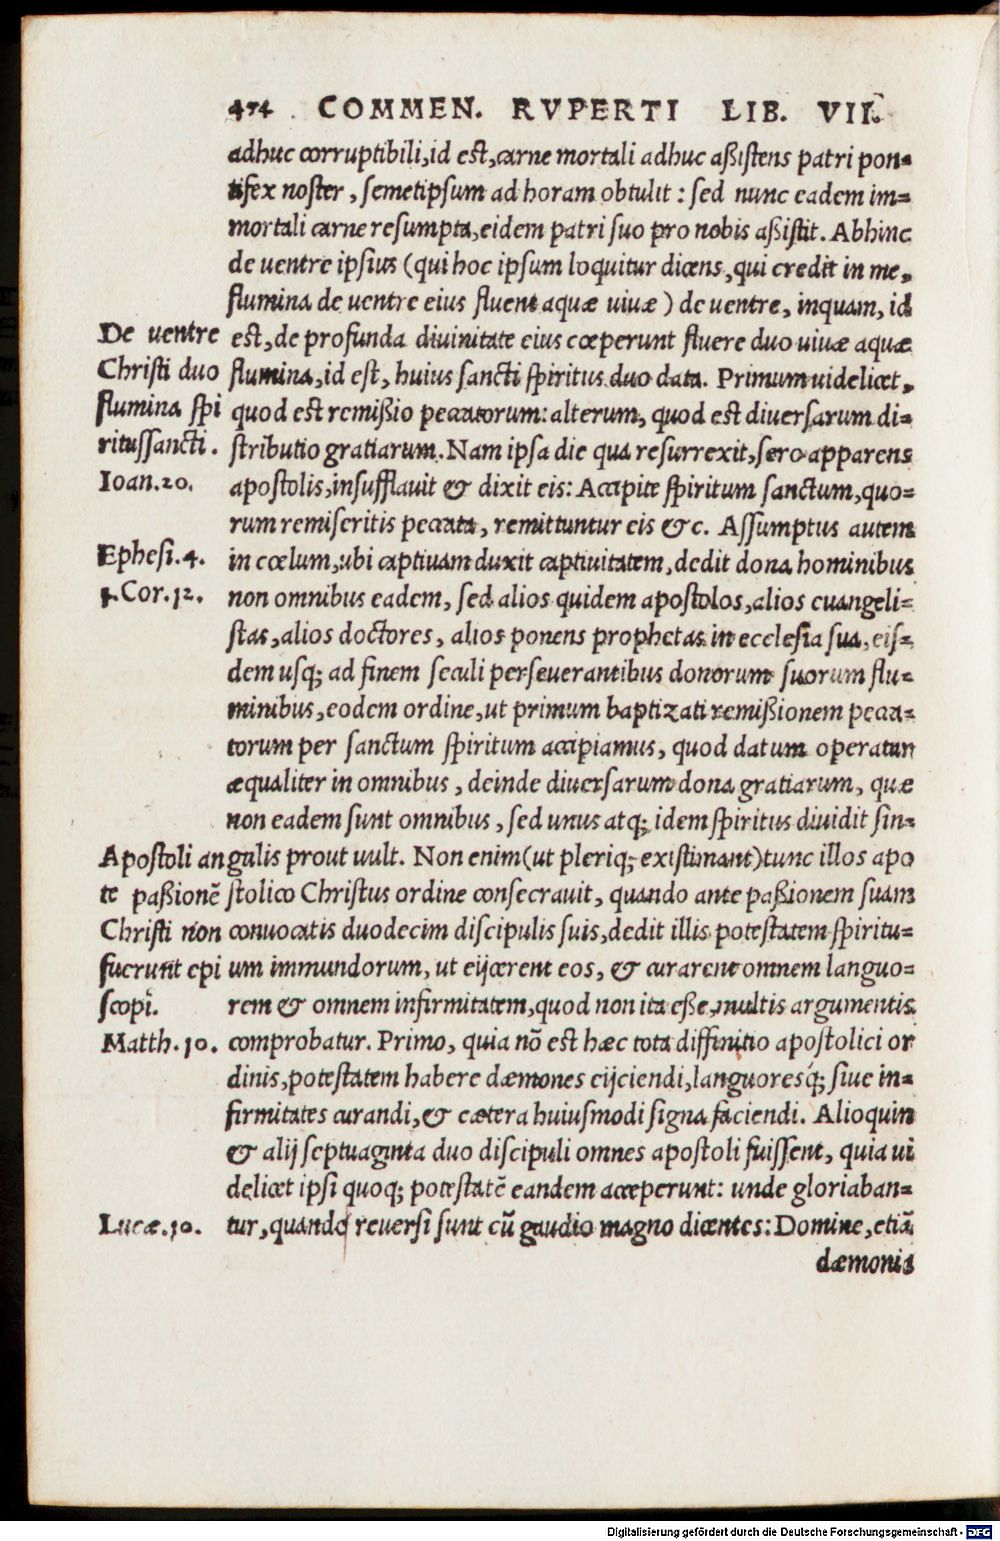 474 COMMEN. RVPERTI LIB. VII.
adhuc corruptibili, id est, carne mortali adhuc aßistens patri pon=
tifex noster, semetipsum ad horam obtulit: sed nunc eadem im=
mortali carne resumpta, eidem patri suo pro nobis aßistit. Abhinc
de uentre ipsius (qui hoc ipsum loquitur dicens, qui credit in me,
flumina de uentre eius fluent aquæ uiuæ) de uentre, inquam, id
De uentre
Christi duo
flumina spi
ritussancti.
est, de profunda diuinitate eius cœperunt fluere duo uiuæ aquæ
flumina, id est, huius sancti spiritus duo data. Primum uidelicet,
quod est remißio peccatorum: alterum, quod est diuersarum di=
stributio gratiarum. Nam ipsa die qua resurrexit, sero apparens
Ioan.20.
apostolis, insufflauit & dixit eis: Accipite spiritum sanctum, quo=
rum remiseritis peccata, remittuntur eis &c. Assumptus autem
Ephesi.4.
in cœlum, ubi captiuam duxit captiuitatem, dedit dona hominibus
1.Cor.12.
non omnibus eadem, sed alios quidem apostolos, alios euangeli=
stas, alios doctores, alios ponens prophetas in ecclesia sua, eis=
dem usq; ad finem seculi perseuerantibus donorum suorum flu=
minibus, eodem ordine, ut primum baptizati remißionem pecca=
torum per sanctum spiritum accipiamus, quod datum operatur
æqualiter in omnibus, deinde diuersarum dona gratiarum, quæ
non eadem sunt omnibus, sed unus atq; idem spiritus diuidit sin=
Apostoli an
te paßionē
Christi non
fuerunt epi
scopi.
gulis prout uult. Non enim (ut pleriq; existimant) tunc illos apo
stolico Christus ordine consecrauit, quando ante paßionem suam
conuocatis duodecim discipulis suis, dedit illis potestatem spiritu=
um immundorum, ut eijcerent eos, & curarent omnem languo=
rem & omnem infirmitatem, quod non ita eße, multis argumentis
Matth.10.
comprobatur. Primo, quia nō est hæc tota diffinitio apostolici or
dinis, potestatem habere dæmones eijciendi, languoresq́; siue in=
firmitates curandi, & cætera huiusmodi signa faciendi. Alioquin
& alij septuaginta duo discipuli omnes apostoli fuissent, quia ui
delicet ipsi quoq; potestatē eandem acceperunt: unde gloriaban=
Lucæ.10.
tur, quando reuersi sunt cū gaudio magno dicentes: Domine, etiā
dæmonis
Digitalisierung gefördert durch die Deutsche Forschungsgemeinschaft - DFG